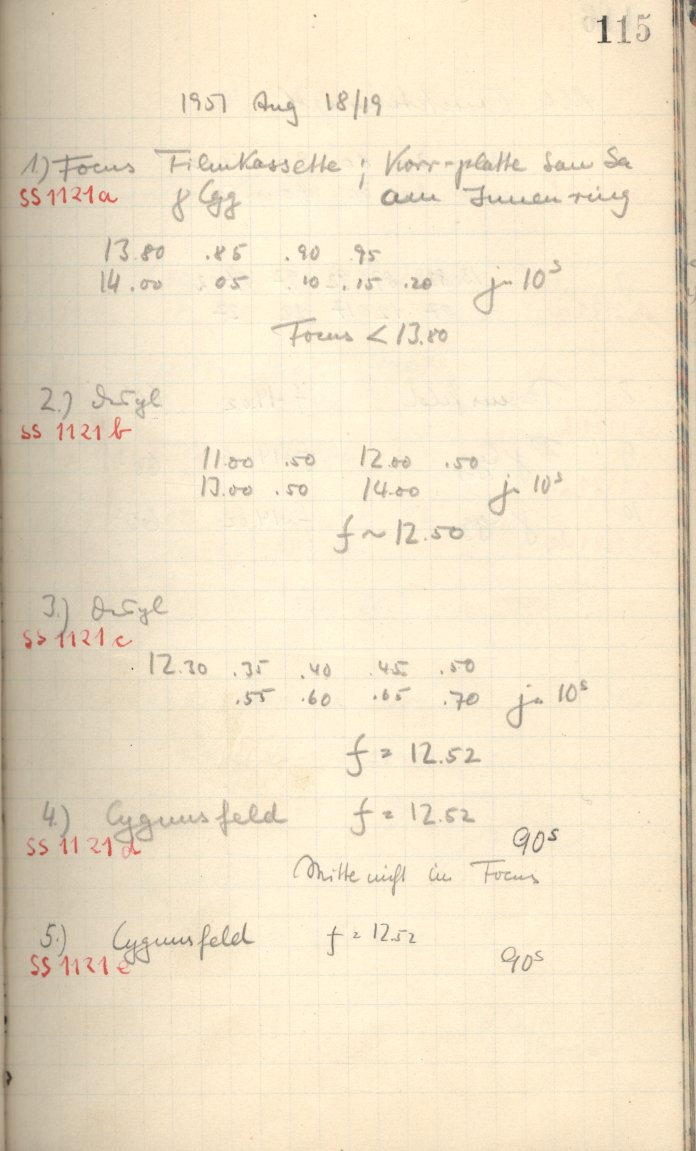 115
1957 Aug 18/19
1) Focus Filmkassette ; Korr-platte
SS1121a γ Cyg am Innenring
13.80 .85 .90 .95
14.00 05 .10 .15 .20 je 10s
Focus < 13.80
2.)
SS 1121b
11.00 .50 12.00 .50
13.00 .50 14.00 je 10s
f ~ 12.50
3.)
SS 1121c
12.30 .35 .40 .45 .50
.55 .60 .65 .70 je 10s
f = 12.52
4.) Cygnusfeld f = 12.52
SS 1121d 90s
Mitte nicht im Focus
5.) Cygnusfeld f = 12.52
SS 1121e 90s